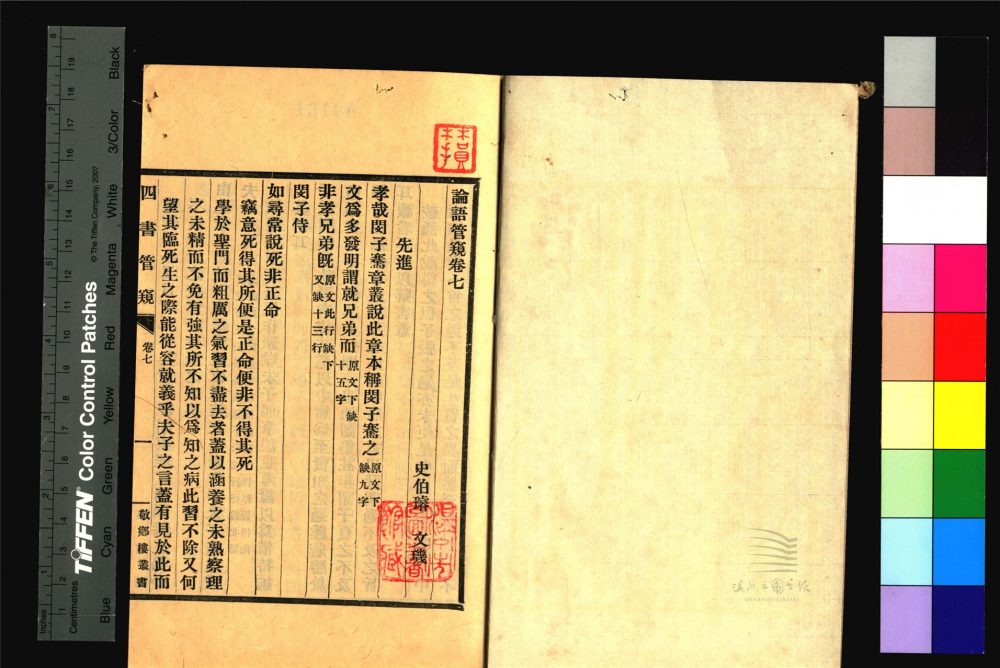 論語管窺卷七
史伯璿 文璣
先進
孝哉閔子騫章叢說此章本稱閔子騫之原文下缺九字
文爲多發明謂就兄弟而原文下缺十五字
非孝兄弟旣原文此行缺下又缺十三行
閔子侍
如尋常說死非正命
竊意死得其所便是正命便非不得其死
學於聖門而粗厲之氣習不盡去者蓋以涵養之未熟察理
之未精而不免有強其所不知以爲知之病此習不除又何
望其臨死生之際能從容就義乎夫子之言蓋有見於此而
四書管窺 卷七 一 敬鄉樓叢書
Inches
Centimetres
TIFFEN Color Control Patches
© The Tiffen Company, 2007
Blue Cyan Green Yellow Red Magenta White 3/Color Black